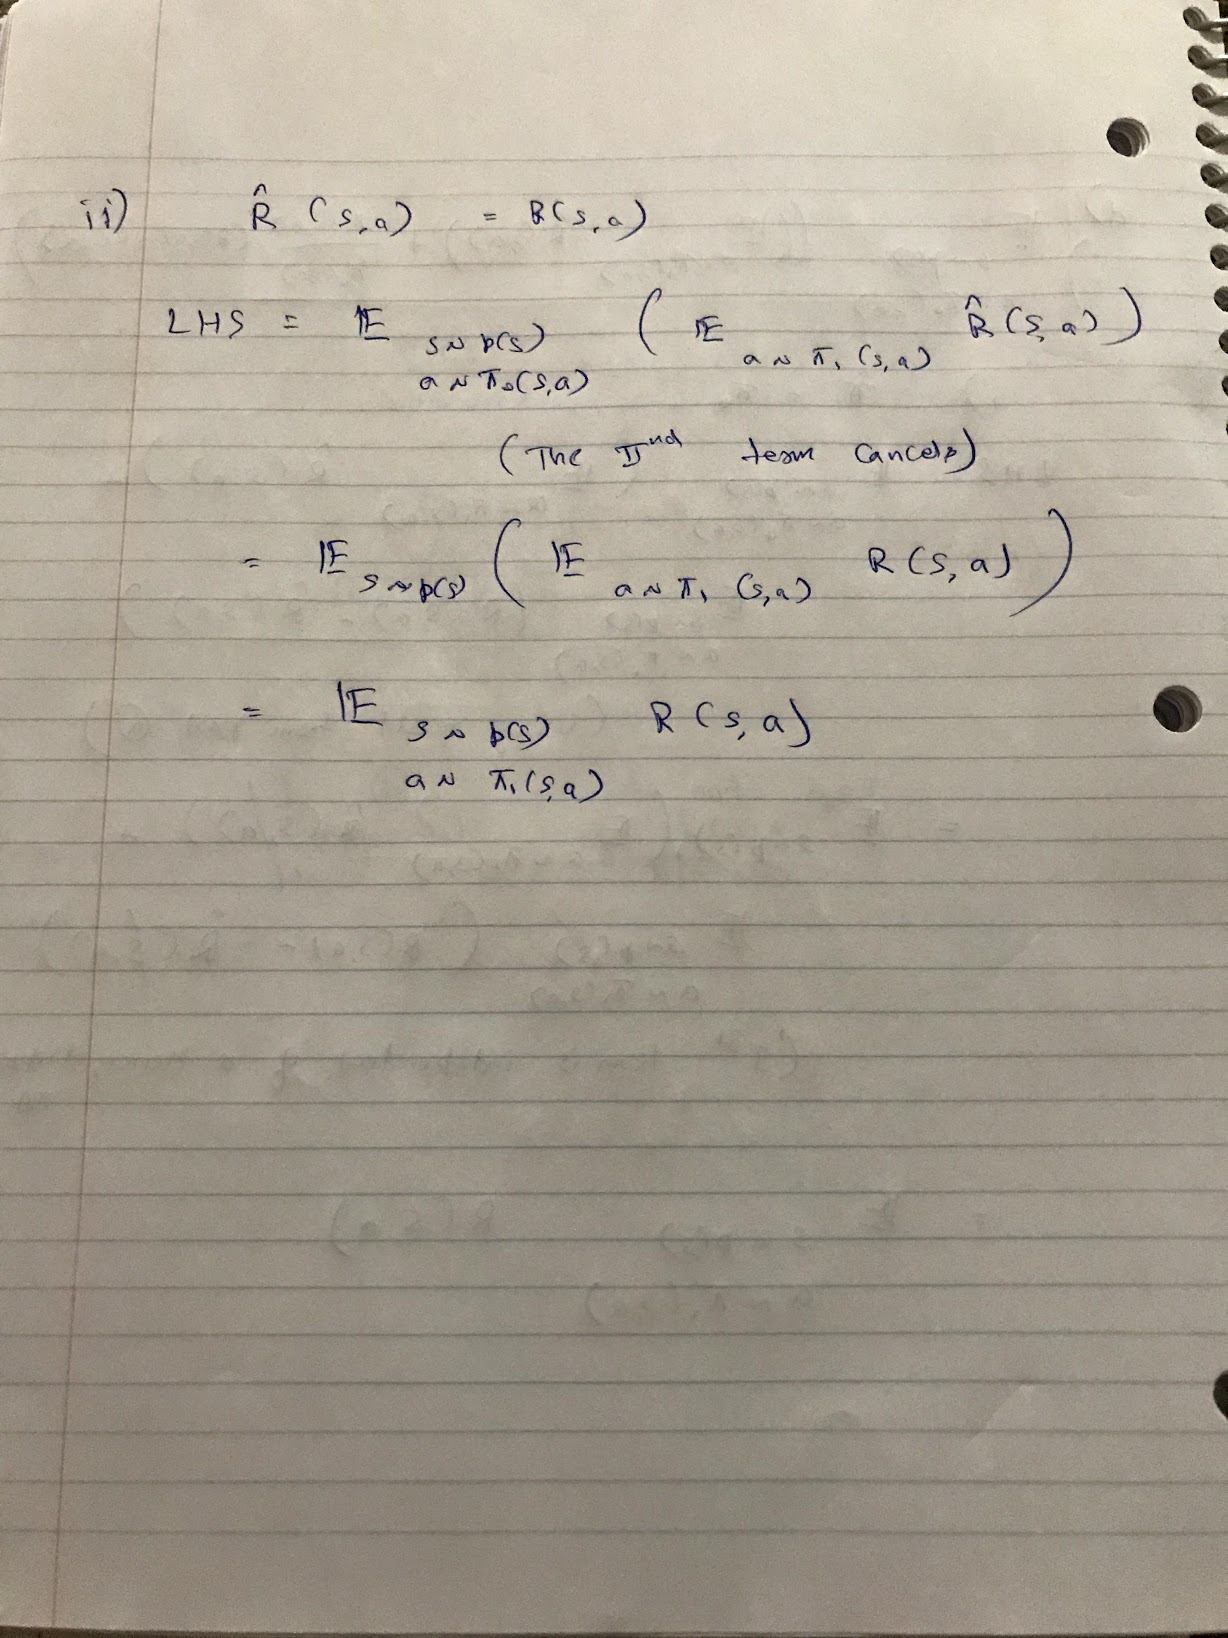 ii) R̂ (s,a) = R(s,a)
LHS = 𝔼 s~p(s) a~π₀(s,a) ( 𝔼 a~π₁(s,a) R̂(s,a) )
(The IInd term cancels)
= 𝔼 s~p(s) ( 𝔼 a~π₁(s,a) R(s,a) )
= 𝔼 s~p(s) R(s,a)
a~π₁(s,a)